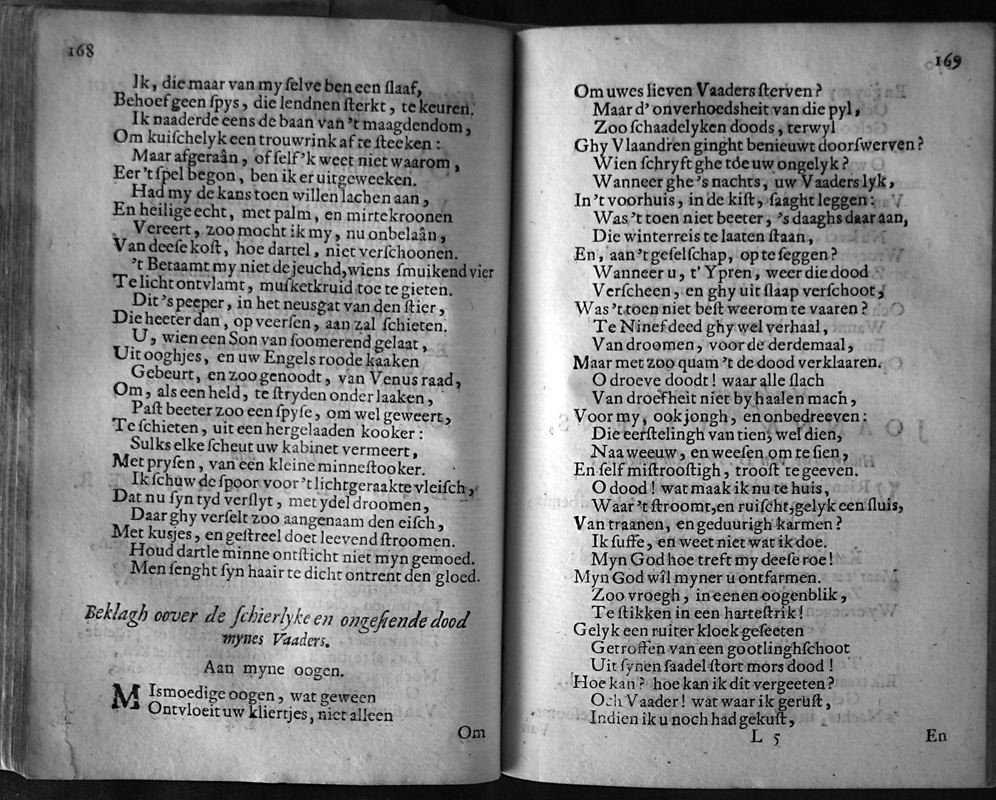 168
Ik, die maar van my ſelve ben een ſlaaf,
Behoef geen ſpys, die lendnen ſterkt, te keuren.
Ik naaderde eens de baan van 't maagdendom,
Om kuiſchelyk een trouwrink af te ſteeken:
Maar afgeraân, of ſelf'k weet niet waarom,
Eer't ſpel begon, ben ik er uitgeweeken.
Had my de kans toen willen lachen aan,
En heilige echt, met palm, en mirtekroonen
Vereert, zoo mocht ik my, nu onbelaân,
Van deeſe koſt, hoe dartel, niet verſchoonen.
't Betaamt my niet de jeuchd, wiens ſmuikend vier
Te licht ontvlamt, muſketkruid toe te gieten.
Dit's peeper, in het neusgat van den ſtier,
Die heeter dan, op veerſen, aan zal ſchieten.
U, wien een Son van ſoomerend gelaat,
Uit ooghjes, en uw Engels roode kaaken
Gebeurt, en zoo genoodt, van Venus raad,
Om, als een held, te ſtryden onder laaken,
Paſt beeter zoo een ſpyſe, om wel geweert,
Te ſchieten, uit een hergelaaden kooker:
Sulks elke ſcheut uw kabinet vermeert,
Met pryſen, van een kleine minneſtooker.
Ik ſchuw de ſpoor voor't lichtgeraakte vleiſch,
Dat nu ſyn tyd verſlyt, met ydel droomen,
Daar ghy verſelt zoo aangenaam den eiſch,
Met kusjes, en geſtreel doet leevend ſtroomen.
Houd dartle minne ontſticht niet myn gemoed.
Men ſenght ſyn haair te dicht ontrent den gloed.
Beklagh oover de ſchierlyke en ongeſiende dood
mynes Vaaders.
Aan myne oogen.
MIsmoedige oogen, wat geween
Ontvloeit uw kliertjes, niet alleen
Om
169
Om uwes lieven Vaaders ſterven?
Maar d' onverhoedsheit van die pyl,
Zoo ſchaadelyken doods, terwyl
Ghy Vlaandren ginght benieuwt doorſwerven?
Wien ſchryft ghe toe uw ongelyk?
Wanneer ghe 's nachts, uw Vaaders lyk,
In't voorhuis, in de kiſt, ſaaght leggen:
Was 't toen niet beeter, 's daaghs daar aan,
Die winterreis te laaten ſtaan,
En, aan't geſelſchap, op te ſeggen?
Wanneer u, t' Ypren, weer die dood
Verſcheen, en ghy uit ſlaap verſchoot,
Was 't toen niet beſt weerom te vaaren?
Te Ninef deed ghy wel verhaal,
Van droomen, voor de derdemaal,
Maar met zoo quam 't de dood verklaaren.
O droeve doodt! waar alle ſlach
Van droefheit niet by haalen mach,
Voor my, ook jongh, en onbedreeven:
Die eerſtelingh van tien, wel dien,
Naa weeuw, en weeſen om te ſien,
En ſelf miſtrooſtigh, trooſt te geeven.
O dood! wat maak ik nu te huis,
Waar 't ſtroomt, en ruiſcht, gelyk een ſluis,
Van traanen, en geduurigh karmen?
Ik ſuffe, en weet niet wat ik doe.
Myn God hoe treft my deeſe roe!
Myn God wil myner u ontfarmen.
Zoo vroegh, in eenen oogenblik,
Te ſtikken in een harteſtrik!
Gelyk een ruiter kloek geſeeten
Getroffen van een gootlinghſchoot
Uit ſynen ſaadel ſtort mors dood!
Hoe kan? hoe kan ik dit vergeeten?
Och Vaader! wat waar ik geruſt,
Indien ik u noch had gekuſt,
L 5
En